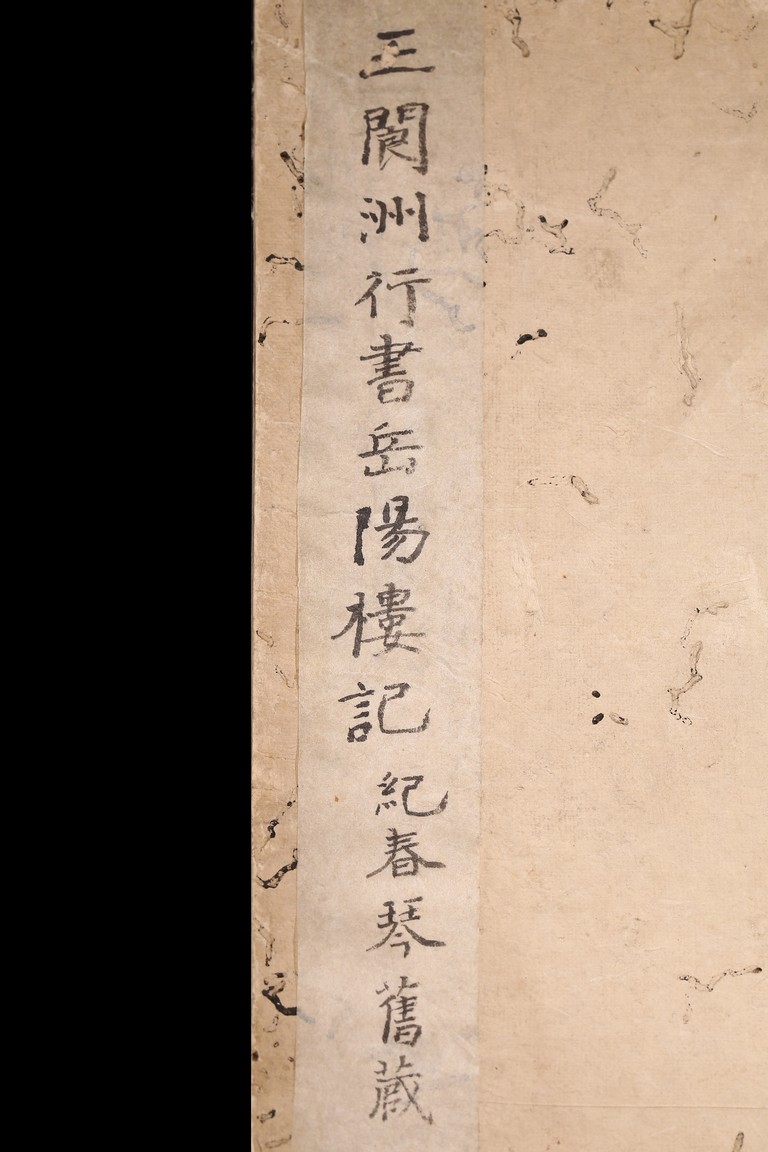 王閬洲行書岳陽樓記 紀春琴舊藏